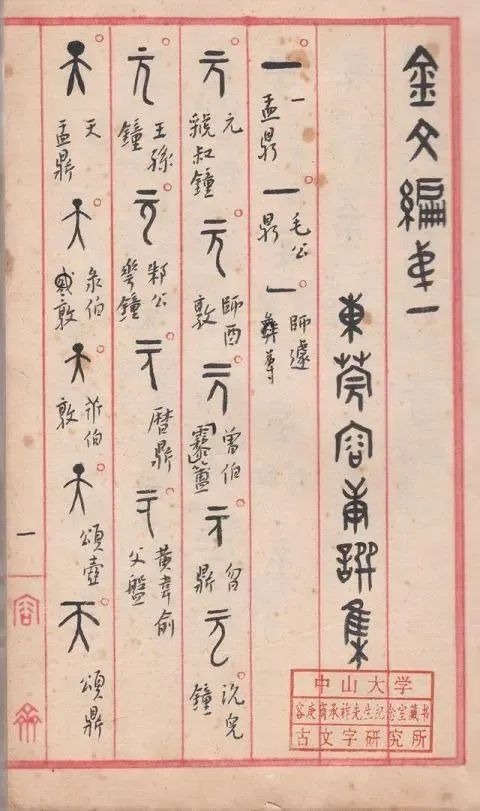 金文編弟一
東莞容庚譔集
一 一 盂鼎 一 毛公鼎 一 師遽
元 元 虢叔鐘 元 師酉敦 元 曾伯霥簠 元 曶鼎 元 沇兒鐘
元 王孫鐘 元 邾公華鐘 元 曆鼎 元 黃韋俞父盤
天 天 盂鼎 天 彔伯敦 天 伯敦 天 頌壺 天 頌鼎
一
容
中山大学
容庚商承祚先生纪念室藏书
古文字研究所